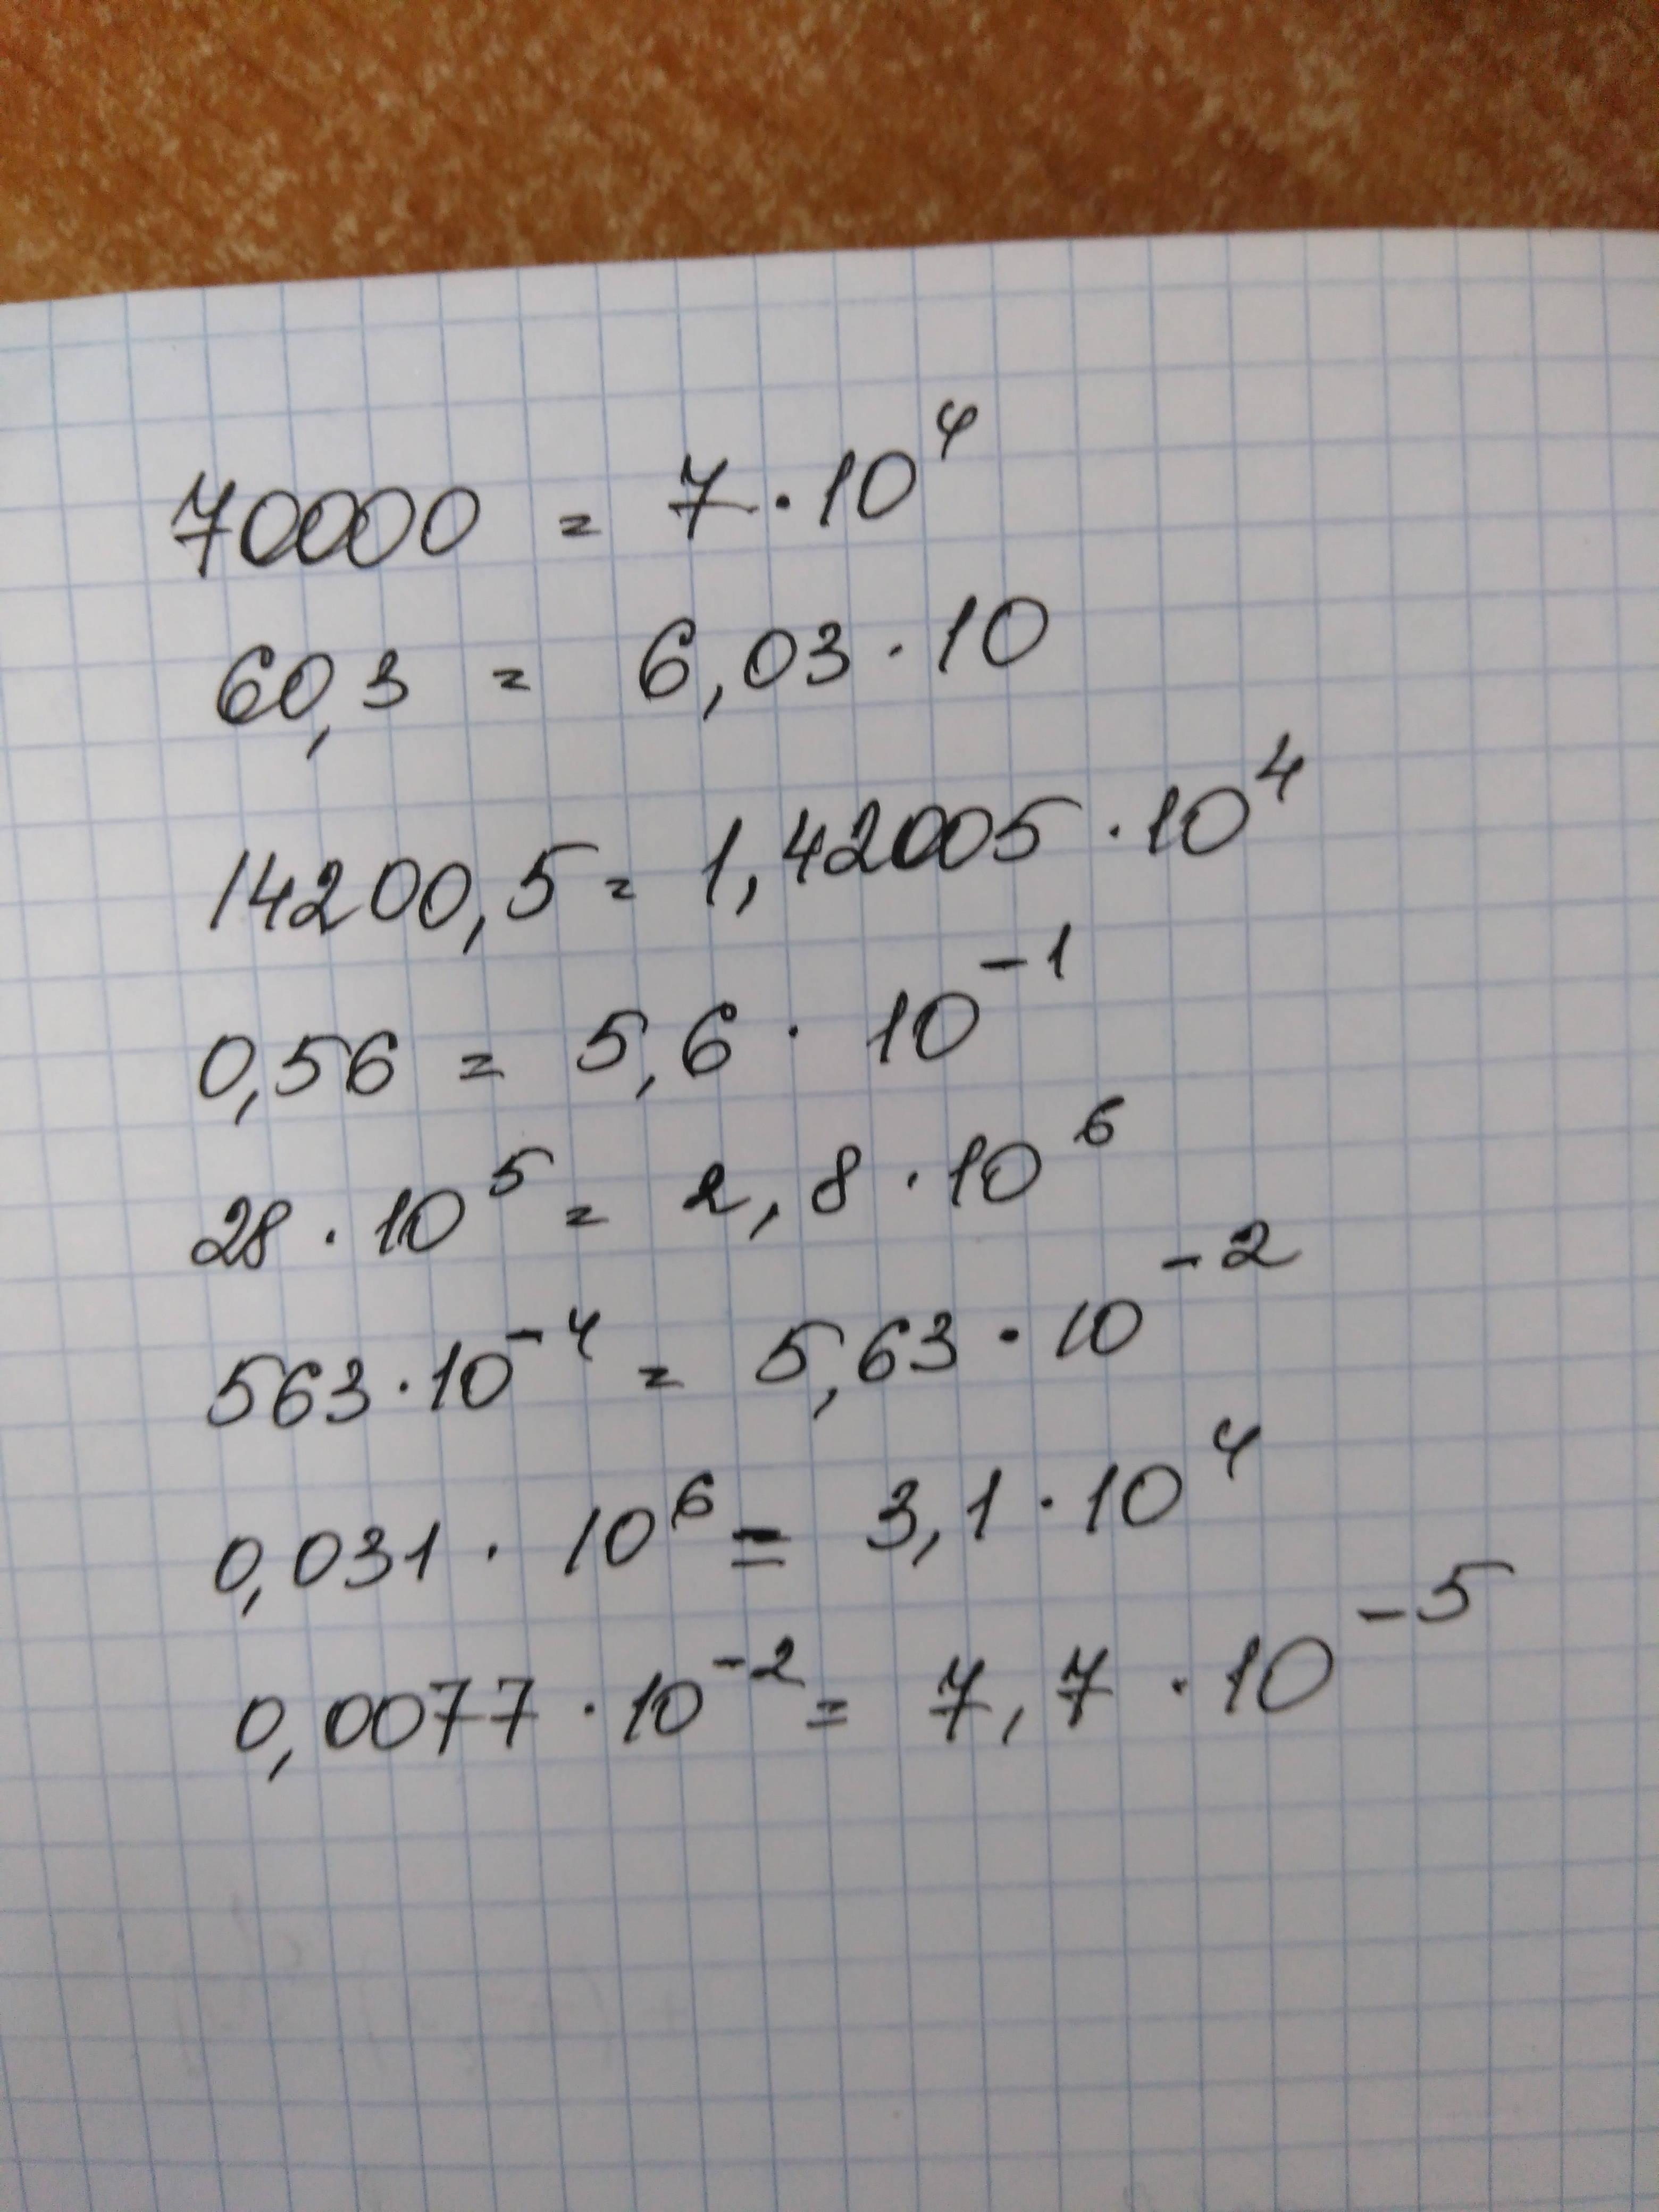 70000 = 7·10⁴
60,3 = 6,03·10
14200,5 = 1,42005·10⁴
0,56 = 5,6·10⁻¹
28·10⁵ = 2,8·10⁶
563·10⁻⁴ = 5,63·10⁻²
0,031·10⁶ = 3,1·10⁴
0,0077·10⁻² = 7,7·10⁻⁵